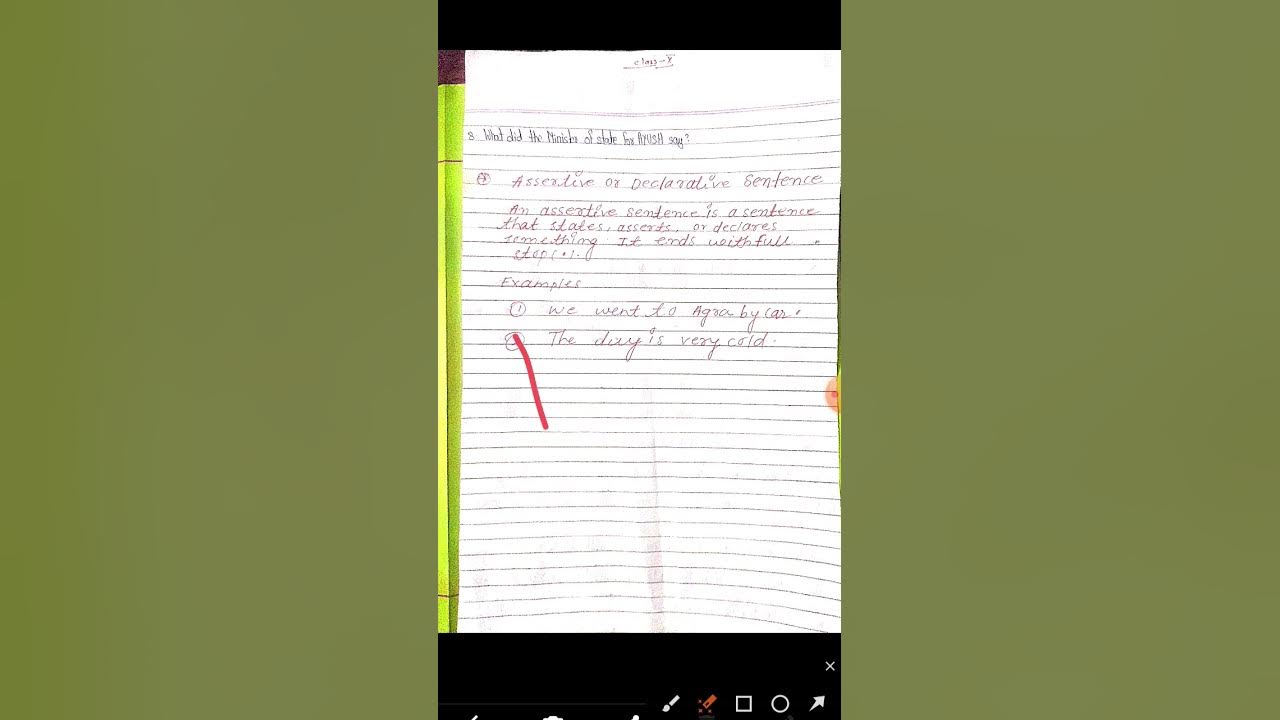 class-X
8. What did the Minister of state for AYUSH say?
Assertive or Declarative Sentence
An assertive sentence is a sentence
that states, asserts, or declares
something. It ends with full
stop(.).
Examples
① We went to Agra by car.
The day is very cold.